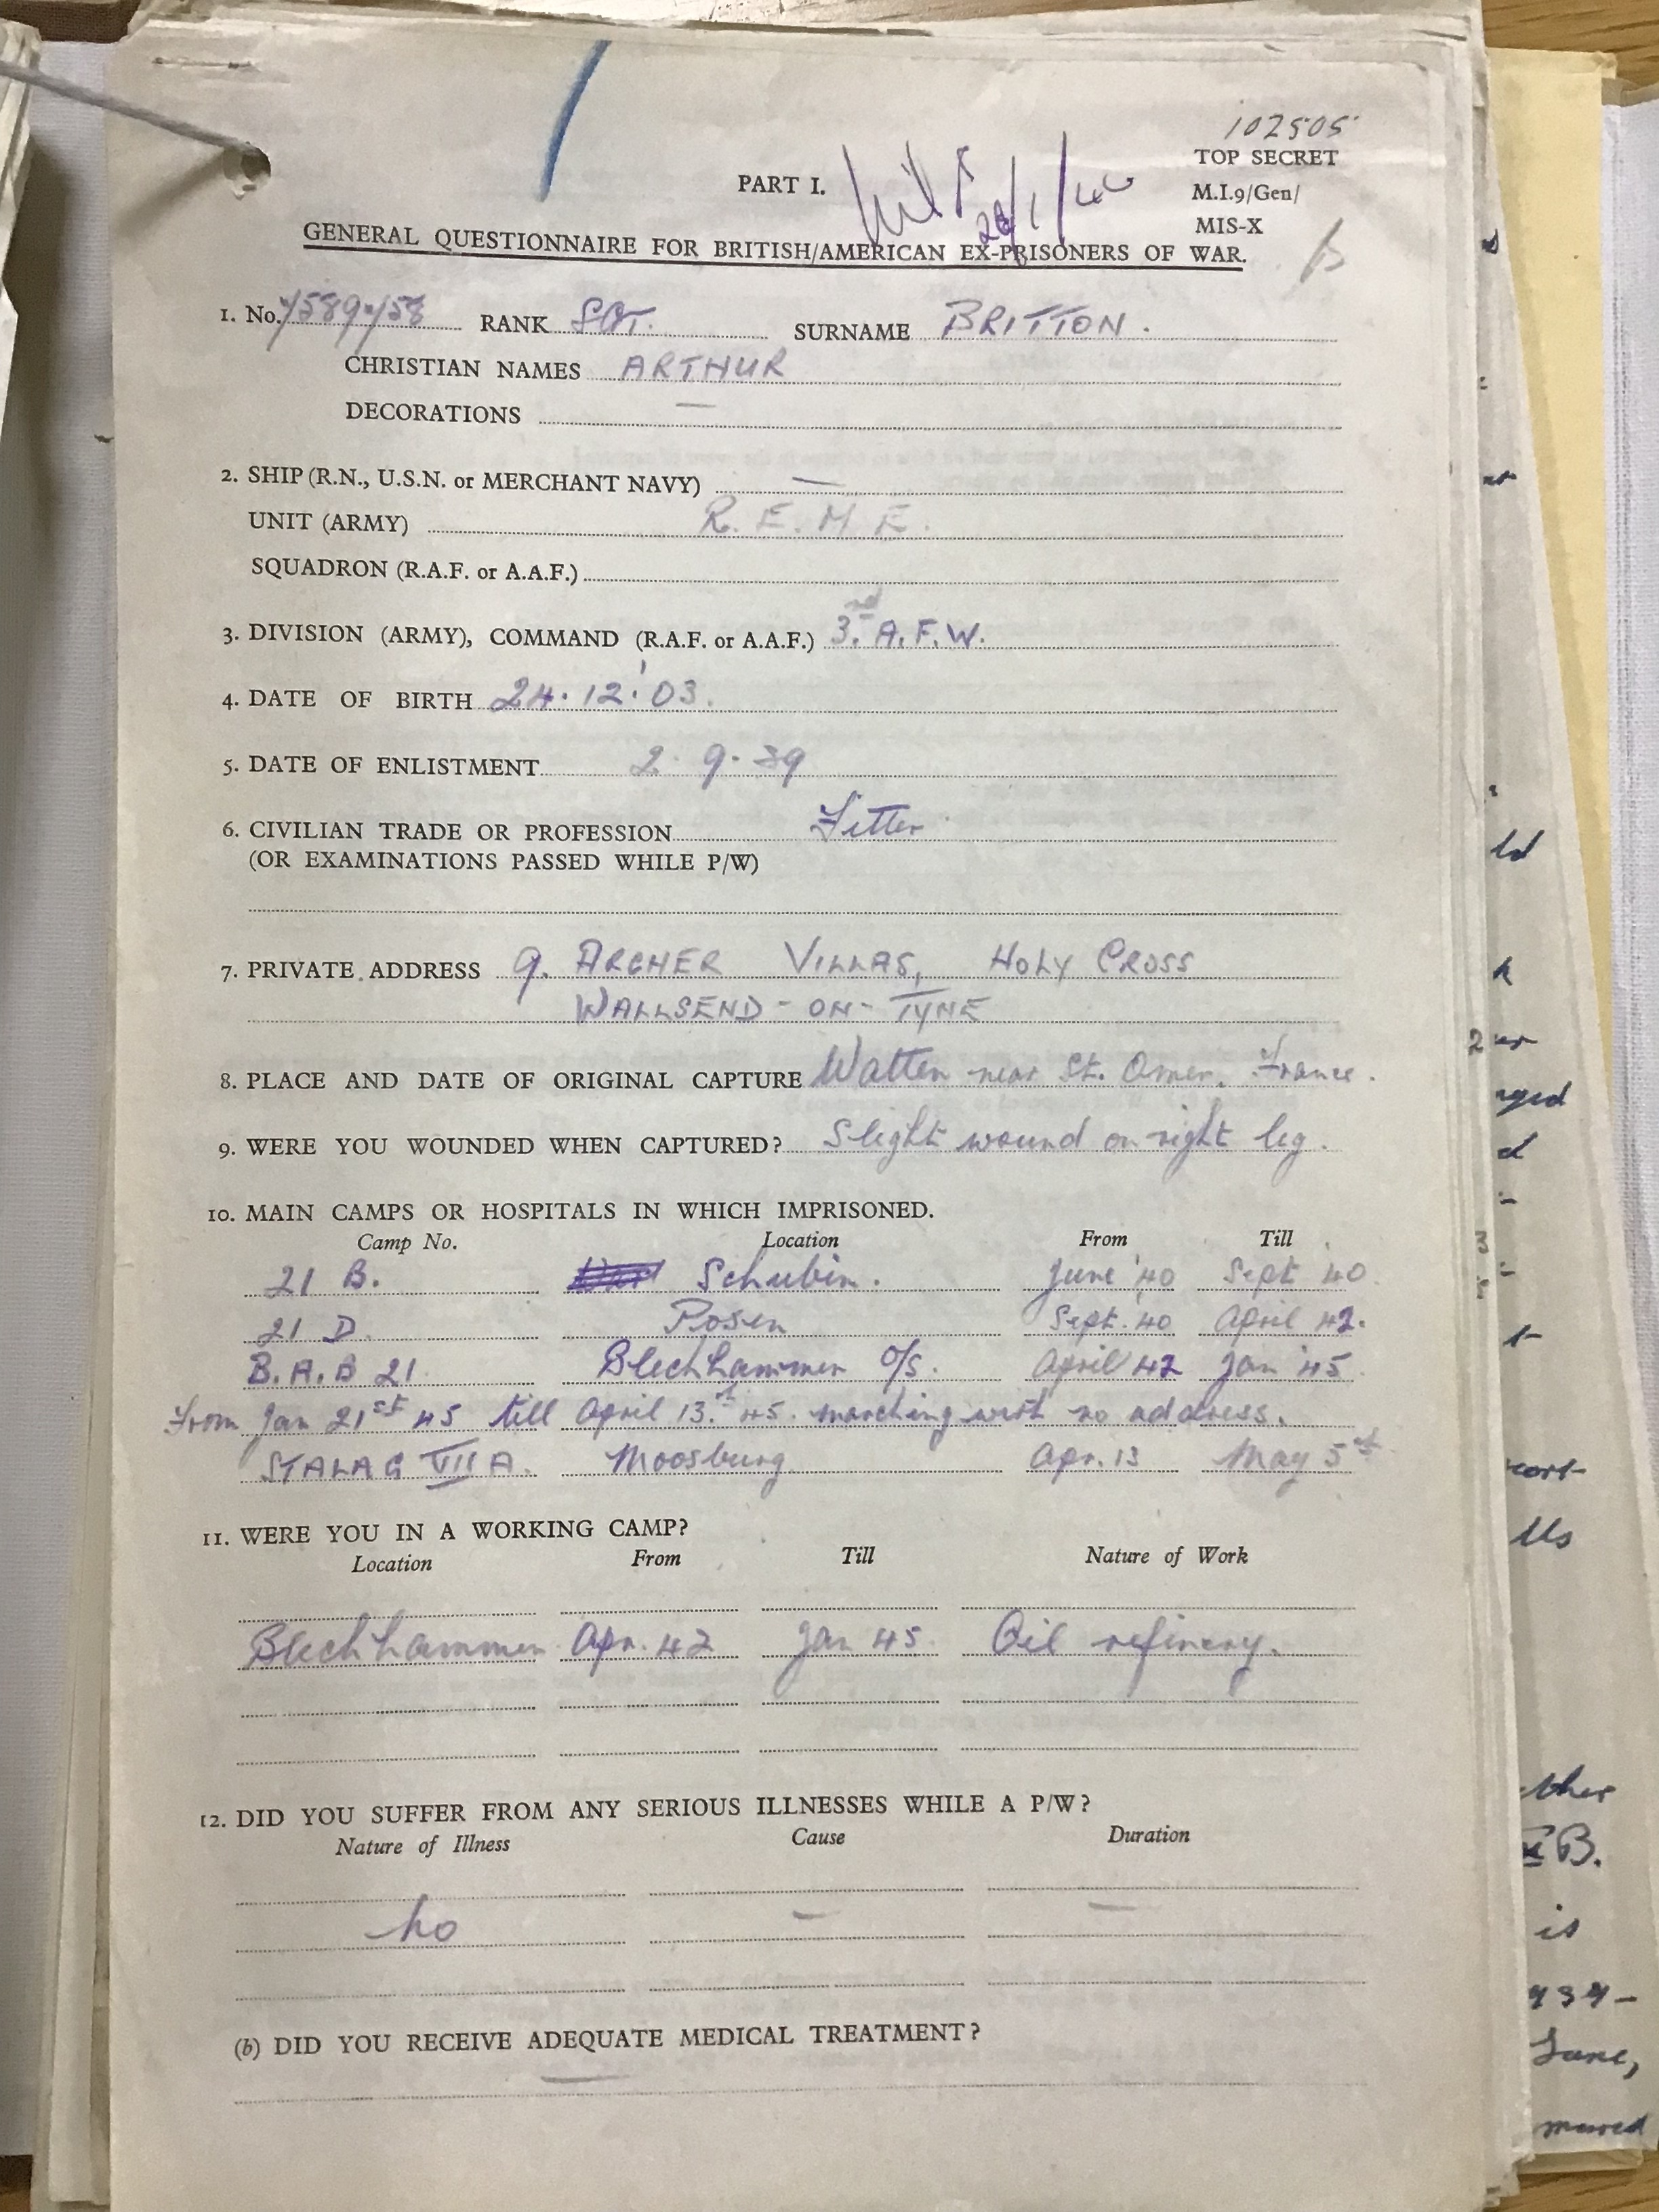 102505
TOP SECRET
PART I.
M.I.9/Gen/
MIS-X
GENERAL QUESTIONNAIRE FOR BRITISH/AMERICAN EX-PRISONERS OF WAR.
1. No. RANK SGT. SURNAME BRITTON.
CHRISTIAN NAMES ARTHUR
DECORATIONS —
2. SHIP (R.N., U.S.N. or MERCHANT NAVY) —
UNIT (ARMY) R. E. M E.
SQUADRON (R.A.F. or A.A.F.)
3. DIVISION (ARMY), COMMAND (R.A.F. or A.A.F.) 3rd A.F.W.
4. DATE OF BIRTH 24·12·'03.
5. DATE OF ENLISTMENT 2·9·39
6. CIVILIAN TRADE OR PROFESSION Fitter
(OR EXAMINATIONS PASSED WHILE P/W)
7. PRIVATE ADDRESS 9. ARCHER VILLAS, HOLY CROSS
WALLSEND-ON-TYNE
8. PLACE AND DATE OF ORIGINAL CAPTURE Watten near St. Omer. France.
9. WERE YOU WOUNDED WHEN CAPTURED? Slight wound on right leg.
10. MAIN CAMPS OR HOSPITALS IN WHICH IMPRISONED.
Camp No. Location From Till
21 B. Schubin. June '40 Sept '40
21 D. Posen Sept. '40 April 42.
B.A.B 21. Blechhammer O/S. April 42 Jan '45.
From Jan 21st 45 till April 13th 45. marching with no address.
STALAG VII A. Moosburg Apr. 13 May 5th
11. WERE YOU IN A WORKING CAMP?
Location From Till Nature of Work
Blechhammer Apr. 42 Jan 45. Oil refinery.
12. DID YOU SUFFER FROM ANY SERIOUS ILLNESSES WHILE A P/W?
Nature of Illness Cause Duration
No — —
(b) DID YOU RECEIVE ADEQUATE MEDICAL TREATMENT?
—